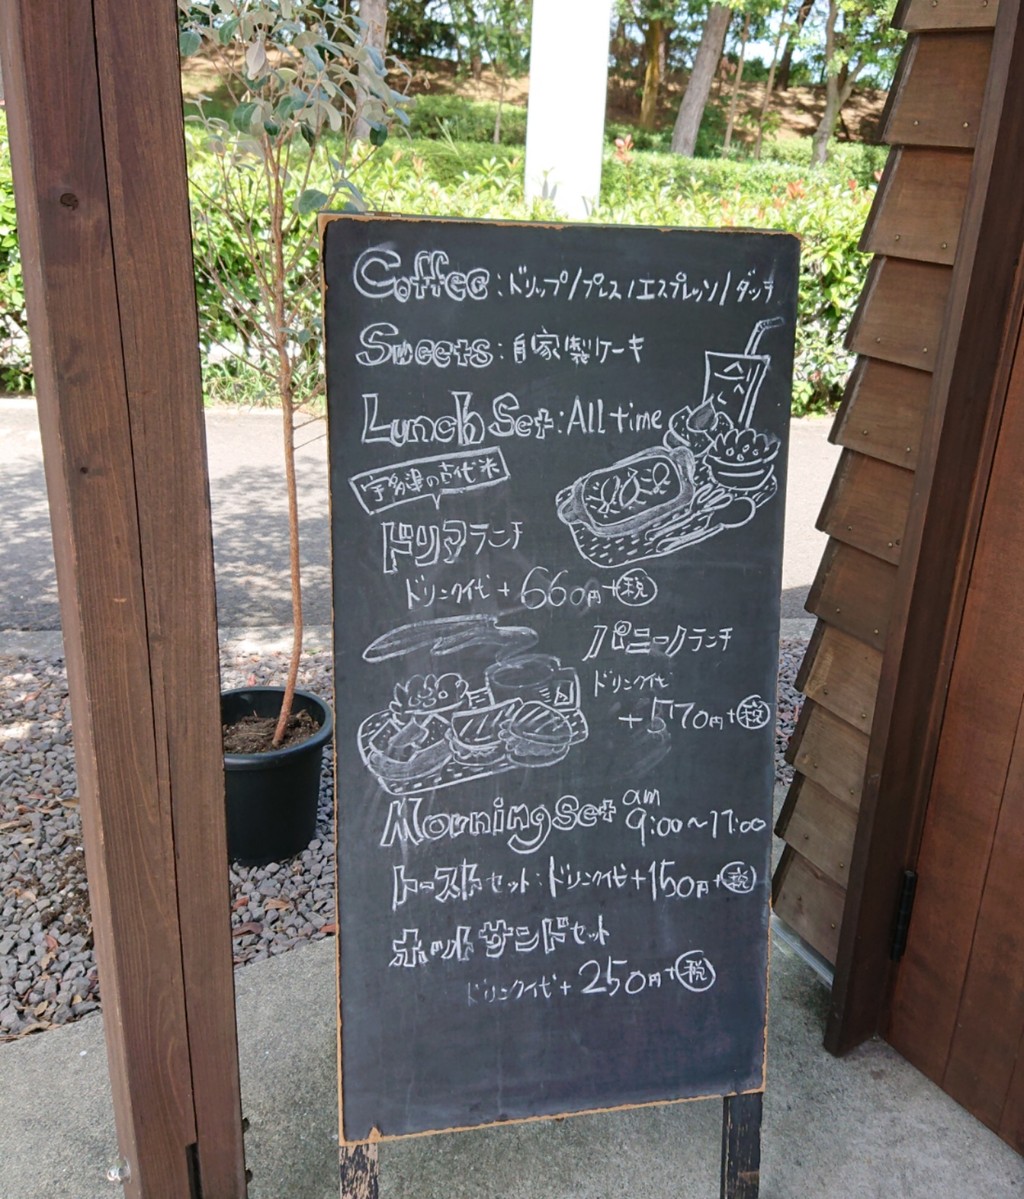 Coffee:ドリップ/プレス/エスプレッソ/ダッチ
Sweets:自家製ケーキ
Lunch Set:All time
宇多津の古代米
ドリアランチ
ドリンク代+660円+税
パニーノランチ
ドリンク代
+570円+税
Morning Set am 9:00~11:00
トーストセット:ドリンク代+150円+税
ホットサンドセット
ドリンク代+250円+税